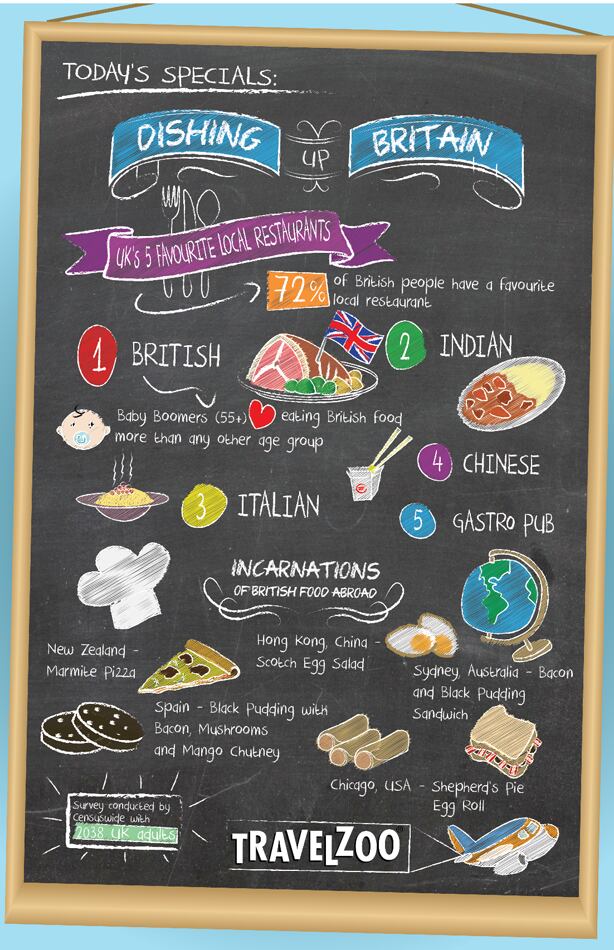 TODAY'S SPECIALS:
DISHING UP BRITAIN
UK'S 5 FAVOURITE LOCAL RESTAURANTS
72% of British people have a favourite
local restaurant
1 BRITISH
2 INDIAN
Baby Boomers (55+) eating British food
more than any other age group
4 CHINESE
3 ITALIAN
5 GASTRO PUB
INCARNATIONS
OF BRITISH FOOD ABROAD
New Zealand -
Marmite Pizza
Hong Kong, China -
Scotch Egg Salad
Sydney, Australia - Bacon
and Black Pudding
Sandwich
Spain - Black Pudding with
Bacon, Mushrooms
and Mango Chutney
Chicago, USA - Shepherd's Pie
Egg Roll
Survey conducted by
Censuswide with
2038 UK adults
TRAVELZOO®